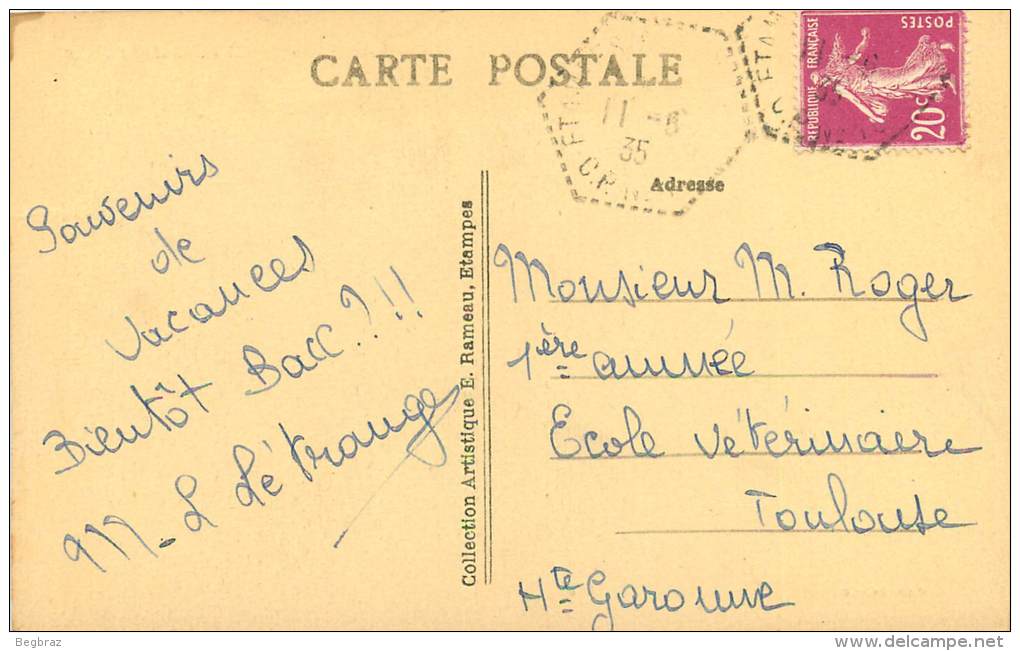 CARTE POSTALE
11 - 6
35
Adresse
POSTES
REPUBLIQUE FRANÇAISE
20c
Souvenirs
de
vacances
Bientôt Bacc?!!
M-L Létrange
Collection Artistique E. Rameau, Etampes
Monsieur M. Roger
1ère année
Ecole vétérinaire
Toulouse
Hte Garonne
Begbraz
www.delcampe.net